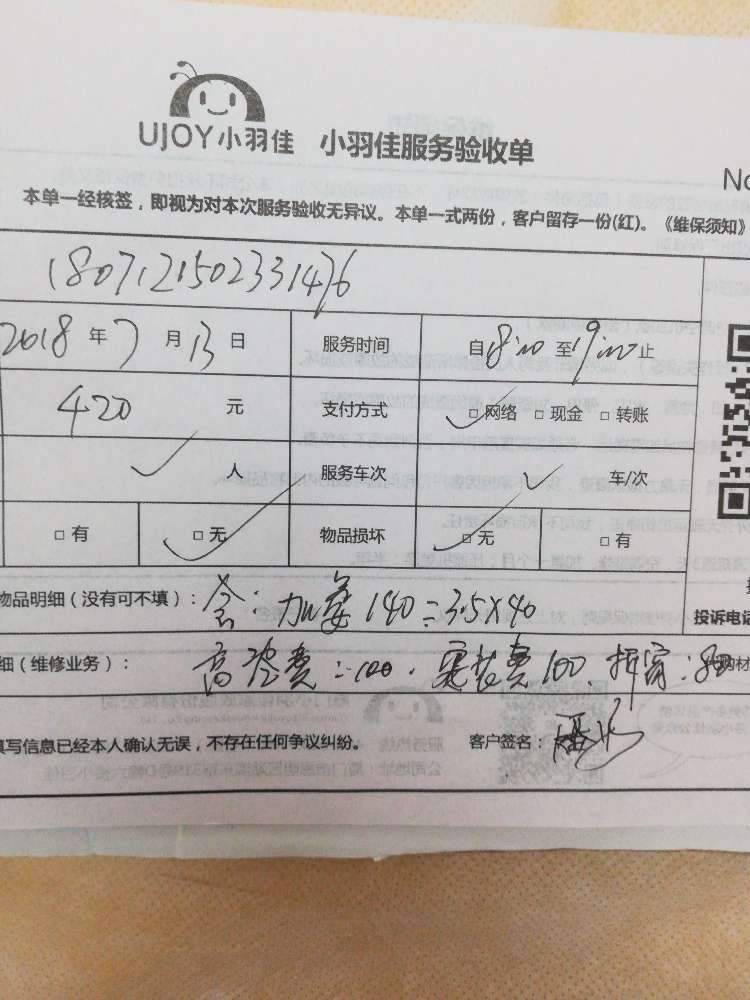 UJOY小羽佳 小羽佳服务验收单
No
本单一经核签，即视为对本次服务验收无异议。本单一式两份，客户留存一份(红)。《维保须知》
1807121502331476
2018 年 7 月 13 日 服务时间 自18:00至19:00止
420 元 支付方式 □网络 □现金 □转账
人 服务车次 车/次
□有 □无 物品损坏 □无 □有
物品明细（没有可不填）： 含：加 140=3.5×40
投诉电话
细（维修业务）： 高空费：100. 安装费100. 拆窗：80
填写信息已经本人确认无误，不存在任何争议纠纷。 客户签名：